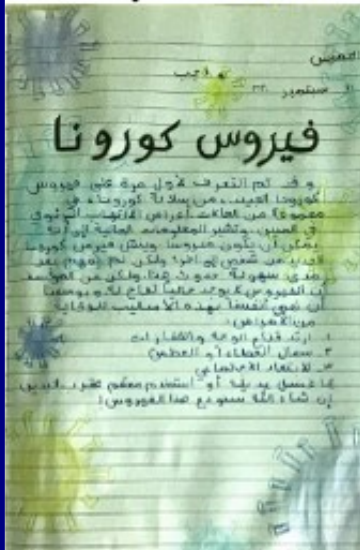 الخميس
واجب
سبتمبر
فيروس كورونا
وقد تم التعرف لأول مرة على فيروس
كورونا الجديد من سلالة كورونا في
مجموعة من الحالات أعراض الالتهاب الرئوي
في الصين، وتشير المعلومات الحالية إلى أنه
يمكن أن يكون فيروسا وينتقل فيروس كورونا
الجديد من شخص إلى آخر؛ ولكن لم
مدى سهولة حدوث هذا، ولكن من المؤسف
أن الفيروس لا يوجد حاليا لقاح له
أن نحمي أنفسنا بهذه الأساليب للوقاية
من الأمراض:
١. ارتد قناع الوجه والقفازات
٢. سعال الغطاء أو العطس
٣. الابتعاد الاجتماعي
غسل يديك أو استخدم معقم
إن شاء الله سنودع هذا الفيروس!